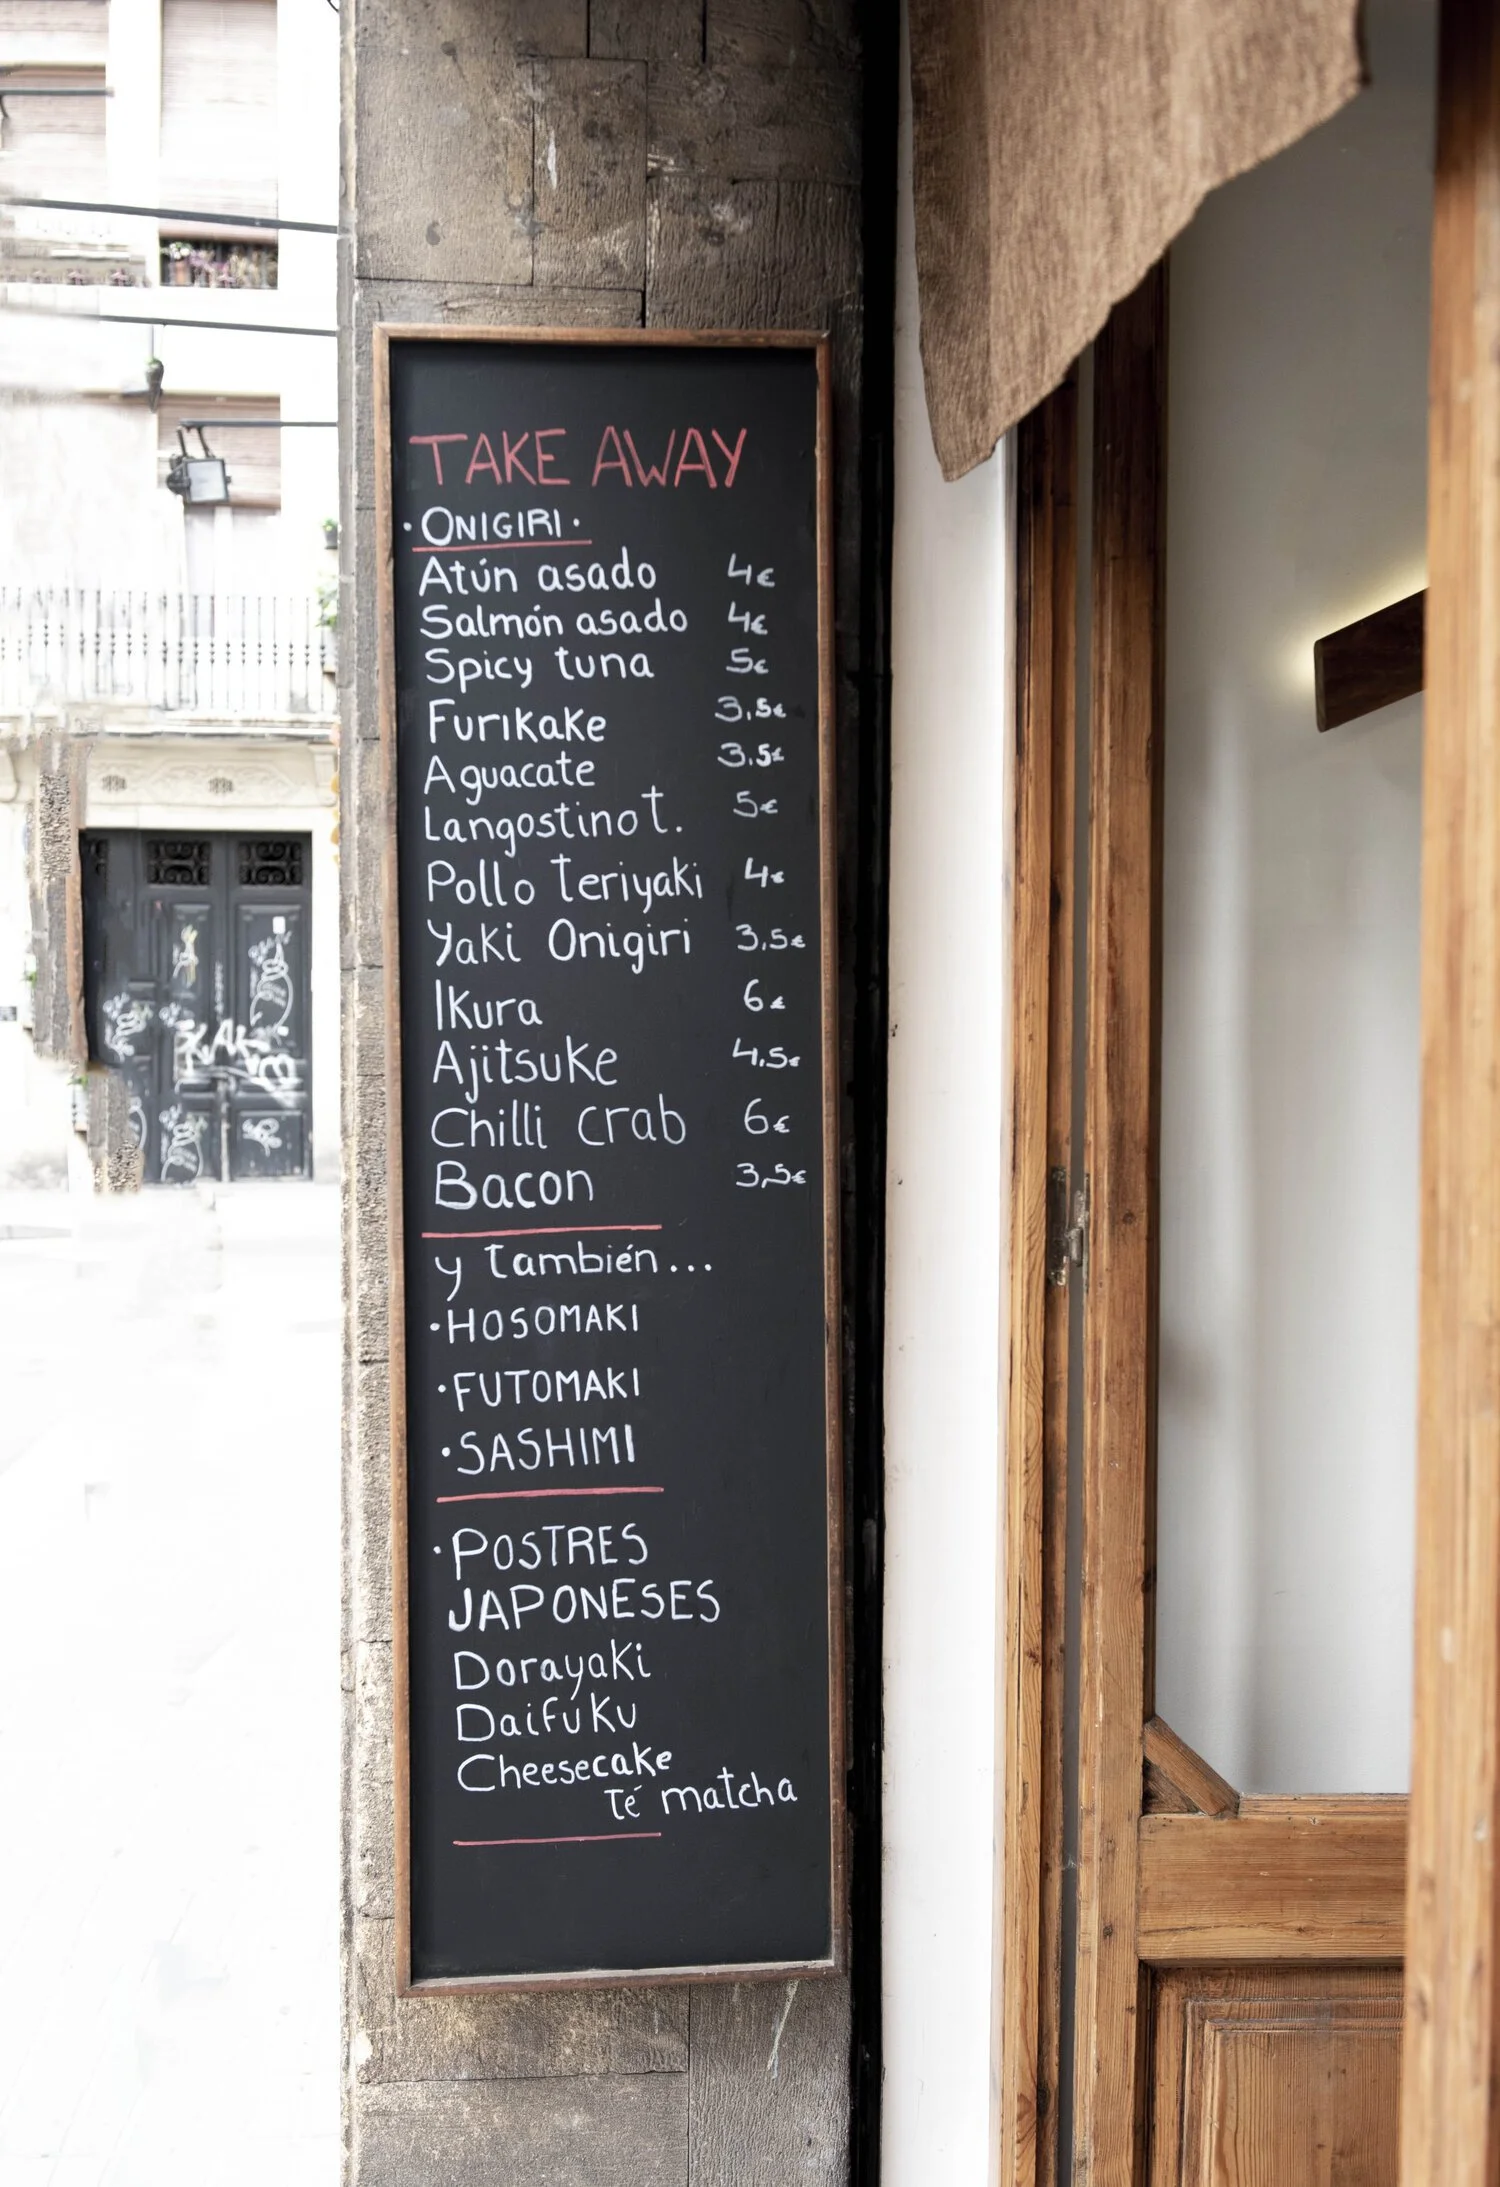 TAKE AWAY
· ONIGIRI ·
Atún asado 4€
Salmón asado 4€
Spicy tuna 5€
Furikake 3,5€
Aguacate 3,5€
Langostino t. 5€
Pollo teriyaki 4€
Yaki Onigiri 3,5€
Ikura 6€
Ajitsuke 4,5€
Chilli crab 6€
Bacon 3,5€
y también...
· HOSOMAKI
· FUTOMAKI
· SASHIMI
· POSTRES
JAPONESES
Dorayaki
Daifuku
Cheesecake
té matcha